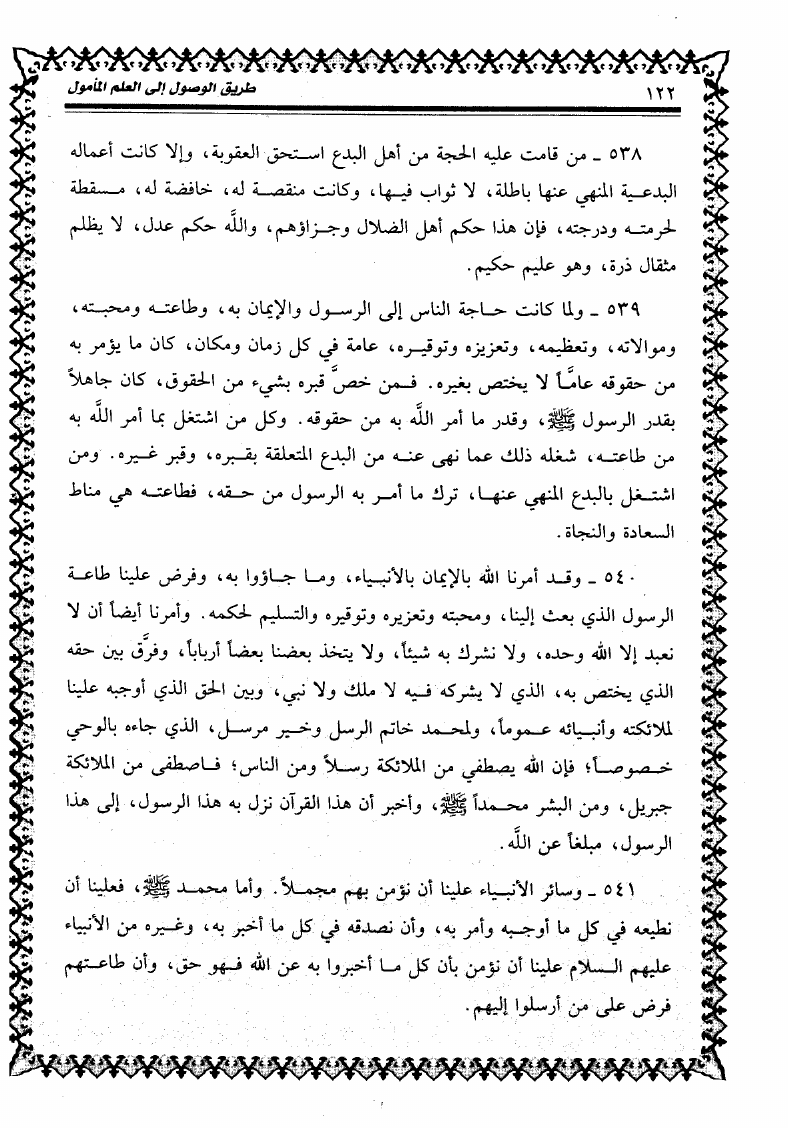 ١٢٢
طريق الوصول إلى العلم المأمول
٥٣٨ ـ من قامت عليه الحجة من أهل البدع استحق العقوبة، وإلا كانت أعماله
البدعية المنهي عنها باطلة، لا ثواب فيها، وكانت منقصة له، خافضة له، مسقطة
لحرمته ودرجته، فإن هذا حكم أهل الضلال وجزاؤهم، واللَّه حكم عدل، لا يظلم
مثقال ذرة، وهو عليم حكيم.
٥٣٩ ـ ولما كانت حاجة الناس إلى الرسول والإيمان به، وطاعته ومحبته،
وموالاته، وتعظيمه، وتعزيزه وتوقيره، عامة في كل زمان ومكان، كان ما يؤمر به
من حقوقه عامًّا لا يختص بغيره. فمن خصَّ قبره بشيء من الحقوق، كان جاهلاً
بقدر الرسول ﷺ، وقدر ما أمر اللَّه به من حقوقه. وكل من اشتغل بما أمر اللَّه به
من طاعته، شغله ذلك عما نهى عنه من البدع المتعلقة بقبره، وقبر غيره. ومن
اشتغل بالبدع المنهي عنها، ترك ما أمر به الرسول من حقه، فطاعته هي مناط
السعادة والنجاة.
٥٤٠ ـ وقد أمرنا الله بالإيمان بالأنبياء، وما جاؤوا به، وفرض علينا طاعة
الرسول الذي بعث إلينا، ومحبته وتعزيره وتوقيره والتسليم لحكمه. وأمرنا أيضاً أن لا
نعبد إلا الله وحده، ولا نشرك به شيئاً، ولا يتخذ بعضنا بعضاً أرباباً، وفرَّق بين حقه
الذي يختص به، الذي لا يشركه فيه لا ملك ولا نبي، وبين الحق الذي أوجبه علينا
لملائكته وأنبيائه عموماً، ولمحمد خاتم الرسل وخير مرسل، الذي جاءه بالوحي
خصوصاً؛ فإن الله يصطفي من الملائكة رسلاً ومن الناس؛ فاصطفى من الملائكة
جبريل، ومن البشر محمداً ﷺ، وأخبر أن هذا القرآن نزل به هذا الرسول، إلى هذا
الرسول، مبلغاً عن اللَّه.
٥٤١ ـ وسائر الأنبياء علينا أن نؤمن بهم مجملاً. وأما محمد ﷺ، فعلينا أن
نطيعه في كل ما أوجبه وأمر به، وأن نصدقه في كل ما أخبر به، وغيره من الأنبياء
عليهم السلام علينا أن نؤمن بأن كل ما أخبروا به عن الله فهو حق، وأن طاعتهم
فرض على من أرسلوا إليهم.